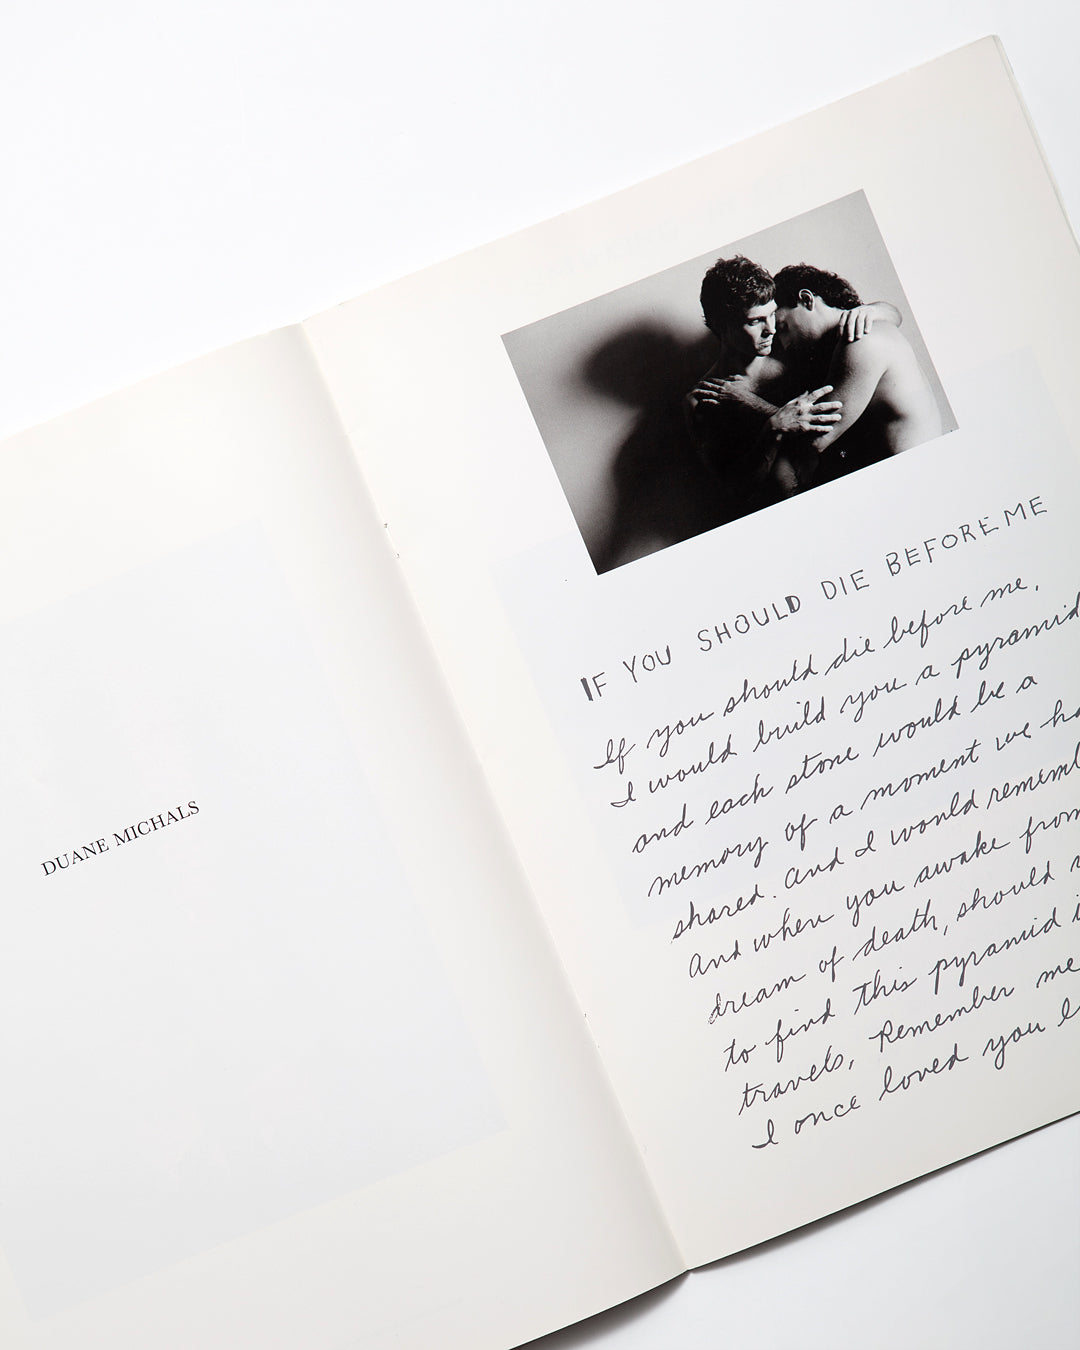 DUANE MICHALS
IF YOU SHOULD DIE BEFORE ME
If you should die before me,
I would build you a pyramid
and each stone would be a
memory of a moment we
shared. And I would
And when you awake from
dream of death, should
to find this pyramid
travels, Remember me
I once loved you